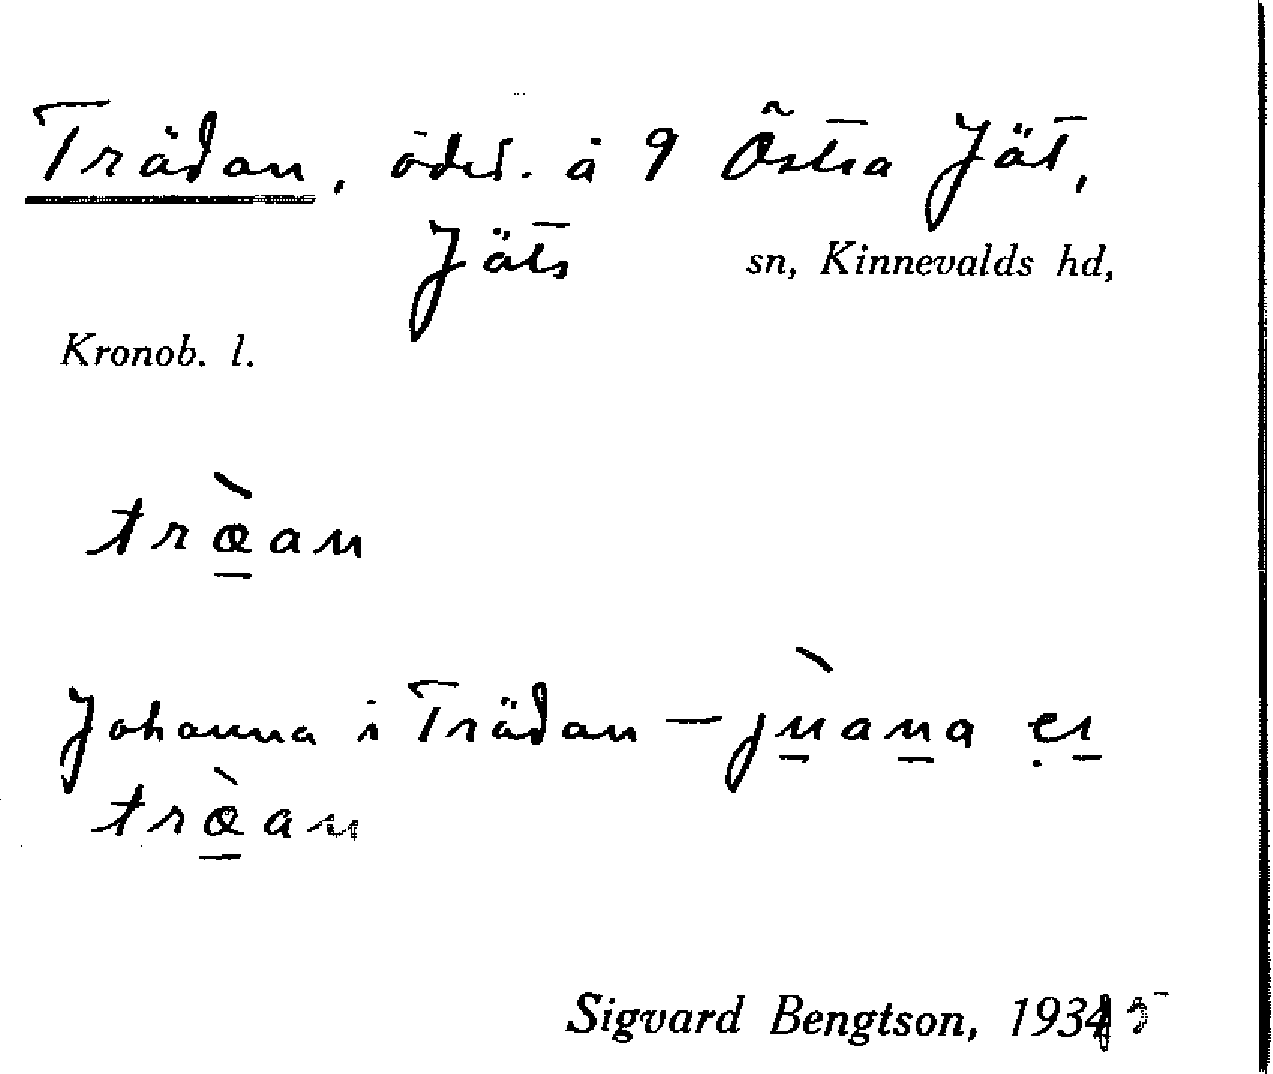 Trädan, ödet. å 9 Östra Jät,
Jäts sn, Kinnevalds hd,
Kronob. l.
træ̠̀an
Johanna i Trädan – jùana
træ̠̀an
Sigvard Bengtson, 1935